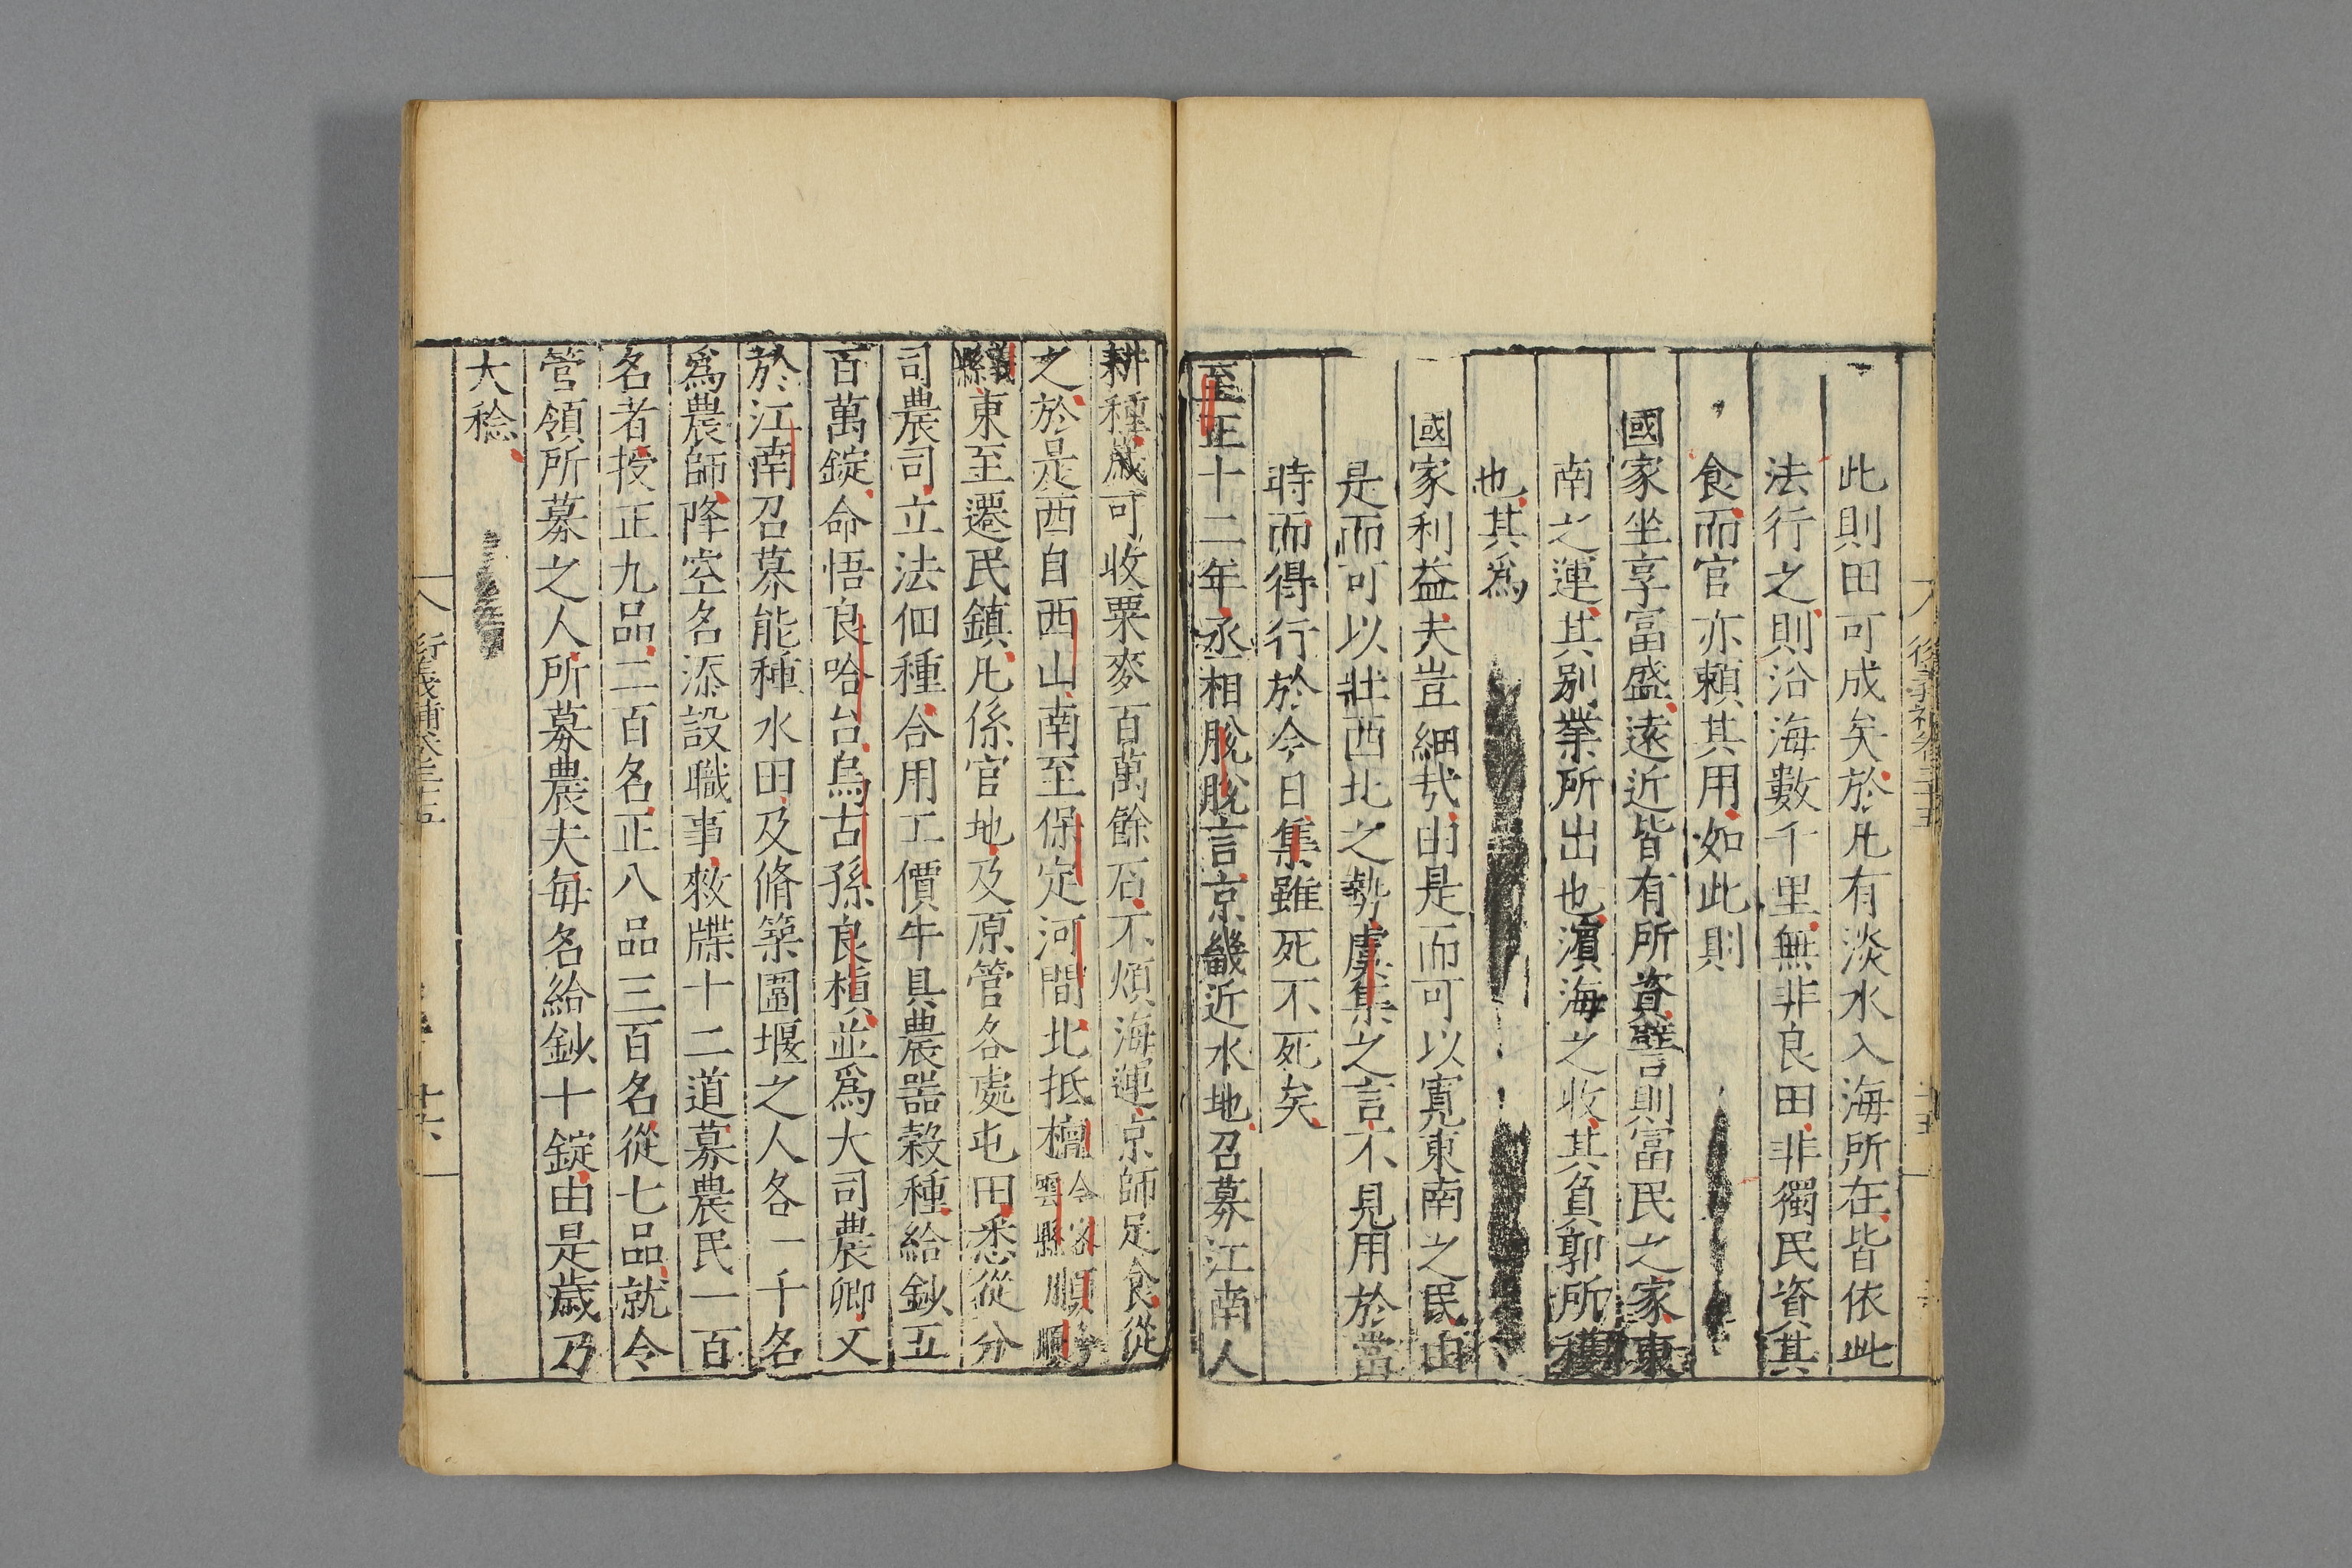 此則田可成矣於凡有淡水入海所在皆依此
法行之則沿海數千里無非良田非獨民資其
食而官亦賴其用如此則
國家坐享富盛遠近皆有所資譬則富民之家東
南之運其別業所出也濵海之收其負郭所穫
也其爲
國家利益夫豈細㦲由是而可以寛東南之民由
是而可以壯西北之勢虞集之言不見用於當
時而得行於今日集雖死不死矣
至正十二年丞相脫脫言京畿近水地召募江南人
耕種歲可收粟麥百萬餘石不煩海運京師足食從
之於是西自西山南至保定河間北抵檀
雲縣順
縣東至遷民鎮凡係官地及原管各處屯田悉從分
司農司立法佃種合用工價牛具農器穀種給鈔五
百萬錠命悟良哈台烏古孫良楨並爲大司農卿又
於江南召募能種水田及脩築圍堰之人各一千名
爲農師降空名添設職事敕牒十二道募農民一百
名者授正九品二百名正八品三百名從七品就令
管領所募之人所募農夫毎名給鈔十錠由是歲乃
大稔
衍義補卷三十五